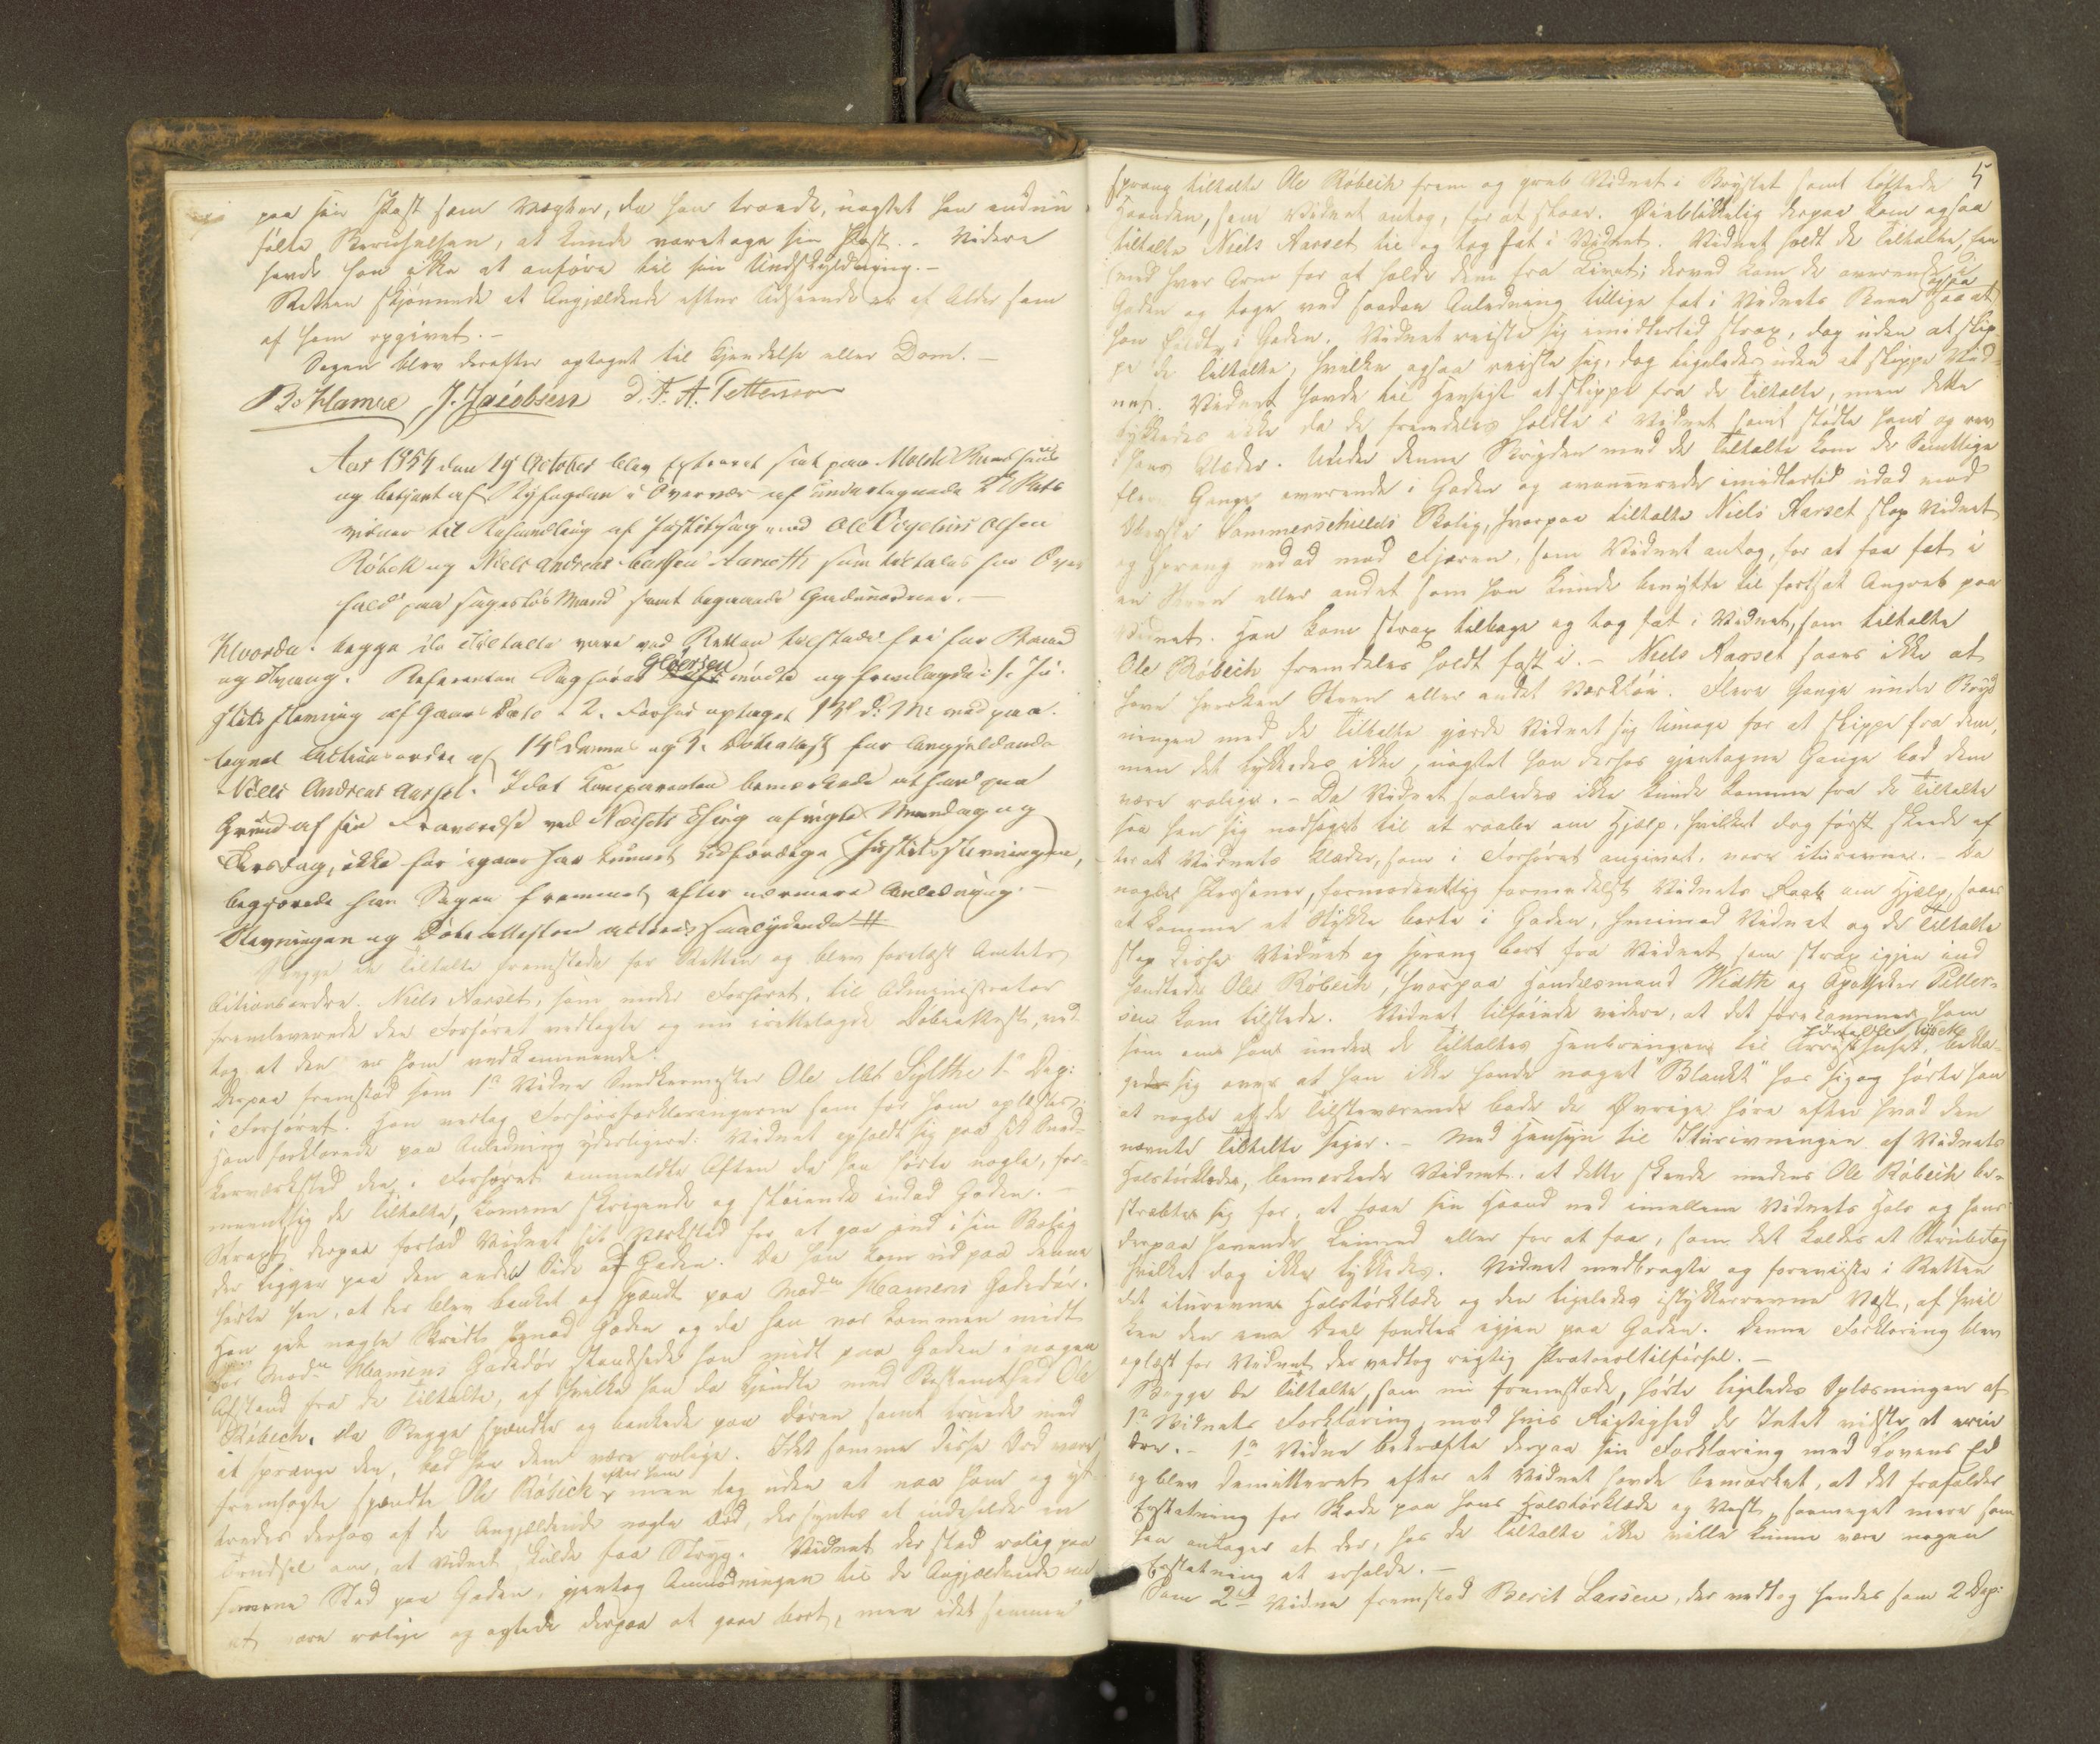 paa sin Post som Vægter, da han troede, uagtet han endnu
følte Beruselsen, at kunde varetage sin Post. - Videre
havde han ikke at anføre til sin Undskyldning. -
Retten skjønnede at Angjældende efter Udseende er af Alder som
af ham opgivet. -
Sagen blev derefter optaget til Kjendelse eller Dom. -
J. Jacobsen D. F. A. Pettersen
Aar 1854 den 19 October blev Extraret sat paa Molde Raadhuus
og betjent af Byfogden i Overvær af undertegnede 2de Rets
vidner til Behandling af Justitssag mod Ole Olsen
Røbek og Niels Andreas som tiltales for Over
fald paa sagesløs Mand samt begaaede Gadeuordener. -
Hvorda: begge de Tiltalte vare ved Retten tilstede fri for Baand
og Tvang. Referenten Sagfører mødte og fremlagde: 1. Ju-
stitsstevning af Gaars Dato 2. Forhør optaget 13de d: M: med paa-
tegnet Actionsordre af 14de dennes og 3. Døbeattest for Angjeldende
Niels Andreas Aarset. Idet Comparenten bemærkede at han paa
Grund af sin Fraværelse ved Næssets Thing afvigte Mandag og
Tirsdag, ikke før igaar har kunnet udfærdige Justitsstevningen,
begjærede han Sagen fremmet efter nærmere Anledning. -
Stevningen og Døbeattesten saalydende #
Begge de Tiltalte fremstode for Retten og blev forelæst Amtets
Actionsordre. Niels Aarset, som under Forhøret, til Administrator
fremleverede den Forhøret vedlagte og nu irettelagte Døbeattest, ved-
tog at den er ham vedkommende.
Derpaa fremstod som 1ste Vidne Snedkermester Ole Mel. Sylthe 1ste Dep:
i Forhøret. Han vedtog Forhørsforklaringerne som for ham oplæstes.
Han forklarede paa Anledning yderligere: Vidnet opholdt sig paa sit Sned-
kerværksted den i Forhøret ommeldte Aften da han hørte nogle, for-
mentlig de Tiltalte, komme skrigende og støiende indad Gaden. -
Strax derpaa forlod Vidnet sit Værksted for at gaa ind i sin Bolig
der ligger paa den anden Side af Gaden. Da han kom ud paa denne
hørte han, at der blev banket og spændt paa Madme Hansens Gadedør.
Han gik nogle Skridt henad Gaden og da han var kommen midt
for Madme Hansens Gadedør standsede han midt paa Gaden i nogen
Afstand fra de Tiltalte, af hvilke han da kjendte med Bestemthed Ole
Røbech. Da Begge spændte og bankede paa Døren samt truede med
at sprænge den, bad han dem være rolige. Idet samme disse Ord vare
fremsagte spændte Ole Røbech efter ham men dog uden at naa ham og yt-
tredes derhos af de Angjældende nogle Ord, der syntes at indeholde en
Trudsel om, at Vidnet skulde faa Stryg. Vidnet der stod rolig paa
samme Sted paa Gaden, gjentog Anmodningen til de Angjældende om
at være rolige og agtede derpaa at gaa bort, men idet samme
5
sprang tiltalte Ole Røbech frem og greb Vidnet i Brystet samt løftede
Haanden, som Vidnet antog, for at slaae. Øieblikkelig derpaa kom ogsaa
tiltalte Niels Aarset til og tog fat i Vidnet. Vidnet holdt de Tiltalte, een
med hver Arm for at holde dem fra Livet; derved kom de overende i
Gaden og toge ved saadan Anledning tillige fat i Vidnets Been saa at ogsaa
han faldt i Gaden. Vidnet reiste sig imidlertid strax, dog uden at slip-
pe de Tiltalte, hvilke ogsaa reiste sig, dog ligeledes uden at slippe Vid-
net. Vidnet havde til Hensigt at slippe fra de Tiltalte, men dette
lykkedes ikke da de fremdeles holdte i Vidnet samt stødte ham og rev
i hans Klæder. Under denne Bryden med de Tiltalte kom de Samtlige
flere Gange overende i Gaden og avancerede imidlertid udad mod
Sommerschields Bolig, hvorpaa tiltalte Niels Aarset slap Vidnet
og sprang nedad mod Fjæren, som Vidnet antog, for at faa fat i
en Steen eller andet som han kunde benytte til fortsat Angreb paa
Vidnet. Han kom strax tilbage og tog fat i Vidnet, som tiltalte
Ole Røbech fremdeles holdt fast i. - Niels Aarset saaes ikke at
have hverken Steen eller andet Værktøi. Flere Gange under Bryd-
ningen med de Tiltalte gjorde Vidnet sig Umage for at slippe fra dem,
men det lykkedes ikke, uagtet han derhos gjentagne Gange bad dem
være rolige. - Da Vidnet saaledes ikke kunde komme fra de Tiltalte
saa han sig nødsaget til at raabe om Hjælp, hvilket dog først skede ef-
ter at Vidnets Klæder, som i Forhøret angivet, vare iturevne. - Da
nogle Personer, formodentlig formedelst Vidnets Raab om Hjælp, saaes
at komme et Stykke borte i Gaden, henimod Vidnet og de Tiltalte
slap disse Vidnet og sprang bort fra Vidnet som strax igjen ind-
hændtede Ole Røbech, hvorpaa Handelsmand Width og Apotheker Petter-
sen kom tilstede. Vidnet tilføiede videre, at det forekommer ham
som om han under de Tiltaltes Henbringen til Arresthuset bekla-
gede sig over at han ikke havde noget "Blankt" hos sig og hørte han
at nogle af de Tilstedeværende bade de Øvrige høre efter hvad den
nævnte Tiltalte siger. - Med Hensyn til Iturivningen af Vidnets
Halstørklæde, bemærkede Vidnet, at dette skeede medens Ole Røbech be-
stræbte sig for, at faae sin Haand ned imellem Vidnets Hals og hans
derpaa havende Linned eller for at faa, som det kaldes at Strubetag
hvilket dog ikke lykkedes. Vidnet medbragte og foreviiste i Retten
det iturevne Halstørklæde og den ligeledes istykkerrevne Vest, af hvil-
ken den ene Deel fandtes igjen paa Gaden. Denne Forklaring blev
oplæst for Vidnet der vedtog rigtig Protocoltilførsel. -
Begge de Tiltalte, som nu fremstode, hørte ligeledes Oplæsningen af
1ste Vidnets Forklaring, mod hvis Rigtighed de Intet vidste at erin-
dre. - 1ste Vidne bekræfte derpaa sin Forklaring med Lovens Ed
og blev demitteret efter at Vidnet havde bemærket, at det frafalder
Erstatning for Skade paa hans Halstørklæde og Vest, saameget mere som
han antager at der, hos de Tiltalte ikke ville kunne være nogen
Erstatning at erholde. -
Som 2det Vidne fremstod Berit Larsen, der vedtog hendes som 2 Dep: